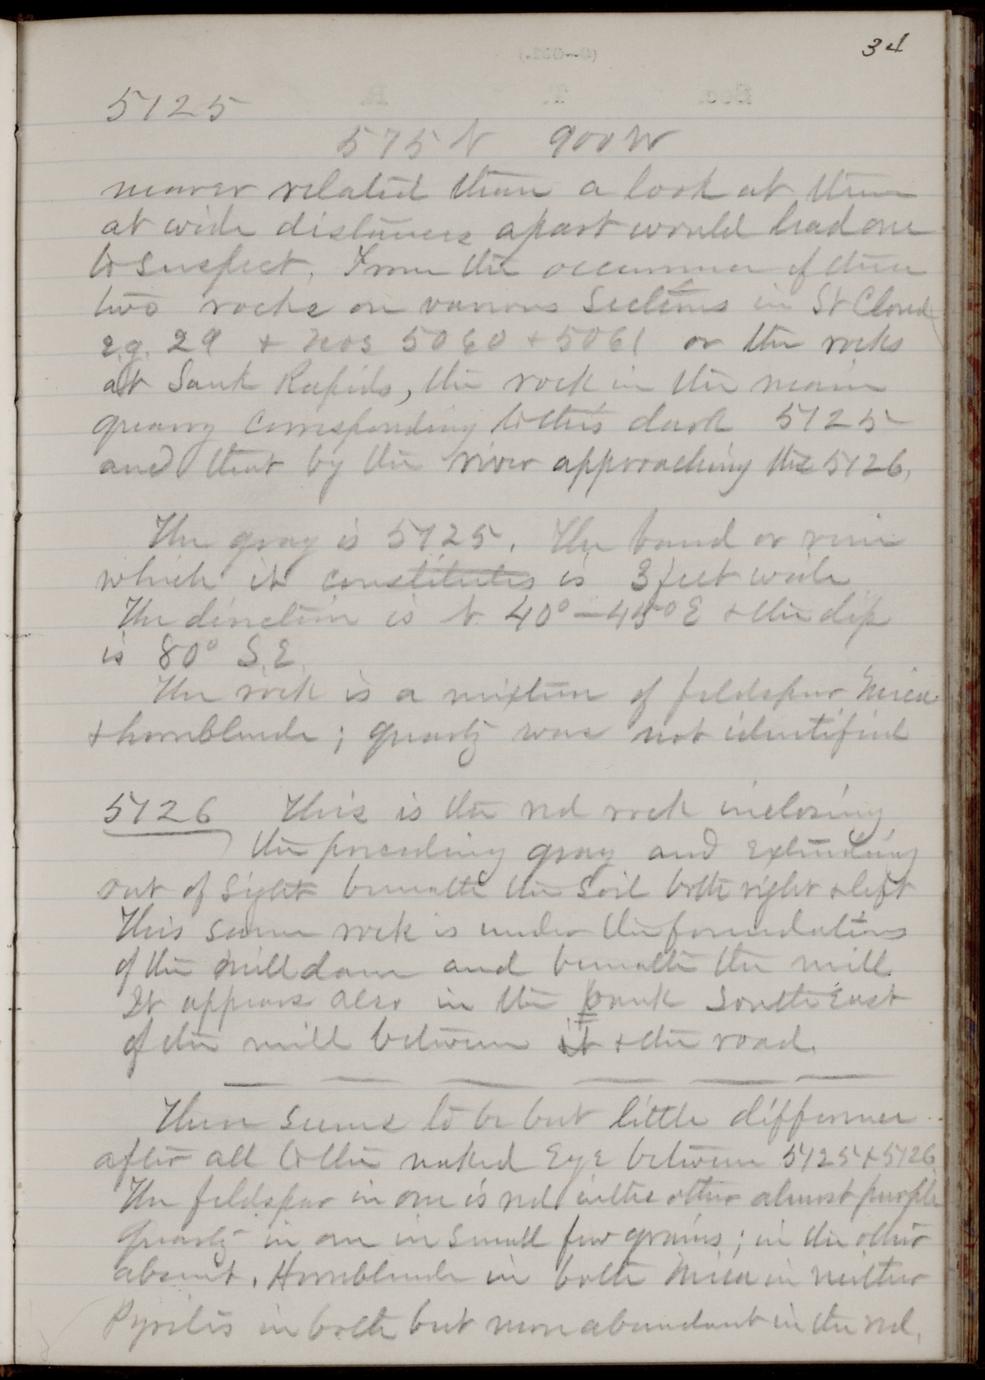 34
5125
575 N 900 W
nearer related than a look at them
at wide distances apart would lead one
to suspect. From the occurrence of these
two rocks on various sections in St Cloud
e.g. 29 + Nos 5060 + 5061 or the rocks
at Sauk Rapids, the rock in the main
quarry corresponding to this dark 5125
and that by the river approaching the 5126.
The gray is 5125. The band or vein
which it constitutes is 3 feet wide
The direction is N. 40° – 45° E + the dip
is 80° S.E.
The rock is a mixture of feldspar mica
+ hornblende; quartz was not identified
5126 This is the red rock inclosing
the preceding gray and extending
out of sight beneath the soil both right + left
This same rock is under the foundations
of the mill dam and beneath the mill.
It appears also in the bank South East
of the mill between it + the road.
There seems to be but little difference
after all to the naked Eye between 5125 + 5126
The feldspar in one is red in the other almost purple
Quartz in one in small few grains; in the other
absent. Hornblende in both Mica in neither
Pyrites in both but more abundant in the red.